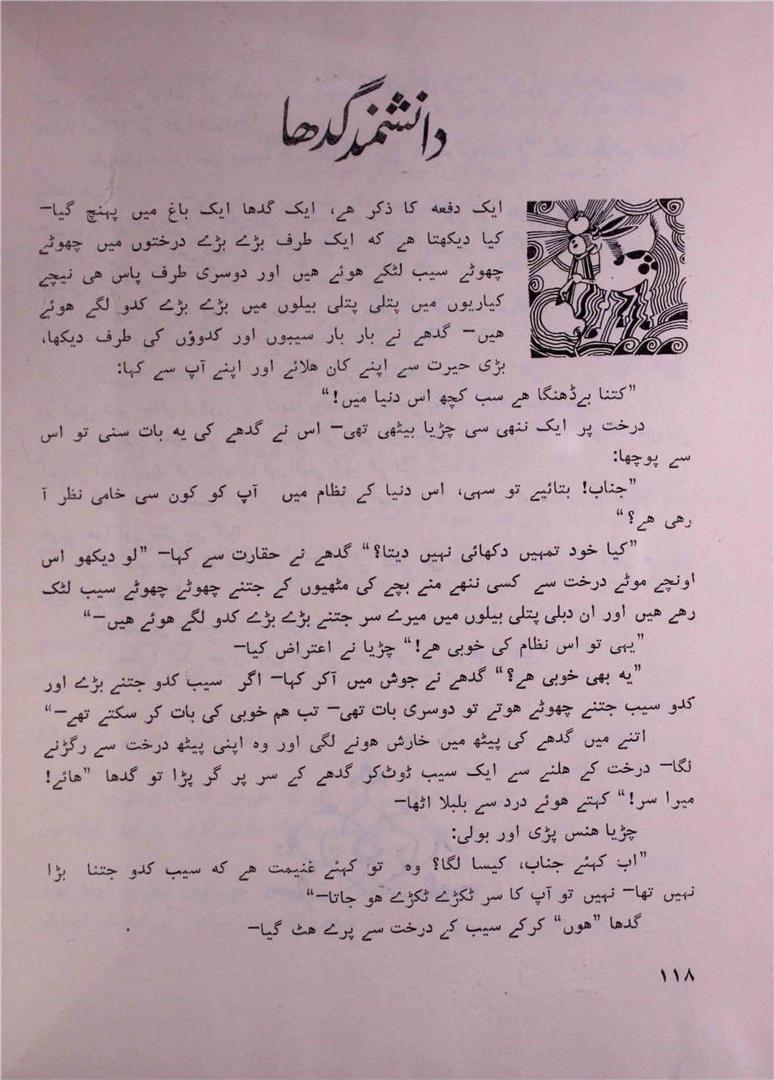 دانشمند گدھا
ایک دفعہ کا ذکر ھے، ایک گدھا ایک باغ میں پہنچ گیا—
کیا دیکھتا ھے کہ ایک طرف بڑے بڑے درختوں میں چھوٹے
چھوٹے سیب لٹکے ھوئے ھیں اور دوسری طرف پاس ھی نیچے
کیاریوں میں پتلی پتلی بیلوں میں بڑے بڑے کدو لگے ھوئے
ھیں— گدھے نے بار بار سیبوں اور کدوؤں کی طرف دیکھا،
بڑی حیرت سے اپنے کان ھلائے اور اپنے آپ سے کہا:
”کتنا بےڈھنگا ھے سب کچھ اس دنیا میں!“
درخت پر ایک ننھی سی چڑیا بیٹھی تھی— اس نے گدھے کی یہ بات سنی تو اس
سے پوچھا:
”جناب! بتائیے تو سہی، اس دنیا کے نظام میں آپ کو کون سی خامی نظر آ
رھی ھے؟“
”کیا خود تمہیں دکھائی نہیں دیتا؟“ گدھے نے حقارت سے کہا— ”لو دیکھو اس
اونچے موٹے درخت سے کسی ننھے منے بچے کی مٹھیوں کے جتنے چھوٹے چھوٹے سیب لٹک
رھے ھیں اور ان دبلی پتلی بیلوں میں میرے سر جتنے بڑے بڑے کدو لگے ھوئے ھیں—“
”یہی تو اس نظام کی خوبی ھے!“ چڑیا نے اعتراض کیا—
”یہ بھی خوبی ھے؟“ گدھے نے جوش میں آکر کہا— اگر سیب کدو جتنے بڑے اور
کدو سیب جتنے چھوٹے ھوتے تو دوسری بات تھی— تب ھم خوبی کی بات کر سکتے تھے—“
اتنے میں گدھے کی پیٹھ میں خارش ھونے لگی اور وہ اپنی پیٹھ درخت سے رگڑنے
لگا— درخت کے ھلنے سے ایک سیب ٹوٹ‌کر گدھے کے سر پر گر پڑا تو گدھا ”ھائے!
میرا سر!“ کہتے ھوئے درد سے بلبلا اٹھا—
چڑیا ھنس پڑی اور بولی:
”اب کہئے جناب، کیسا لگا؟ وہ تو کہئے غنیمت ھے کہ سیب کدو جتنا بڑا
نہیں تھا— نہیں تو آپ کا سر ٹکڑے ٹکڑے ھو جاتا—“
گدھا ”ھوں“ کرکے سیب کے درخت سے پرے ھٹ گیا—
۱۱۸